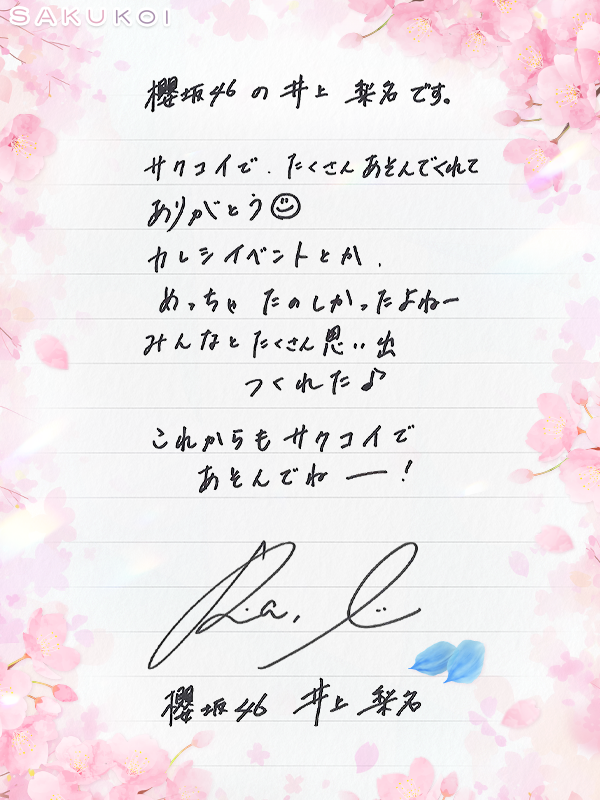 SAKUKOI
櫻坂46の井上梨名です。
サクコイで、たくさんあそんでくれて
ありがとう☺
カレシイベントとか、
めっちゃたのしかったよねー
みんなとたくさん思い出
つくれた♪
これからもサクコイで
あそんでねー！
櫻坂46 井上梨名